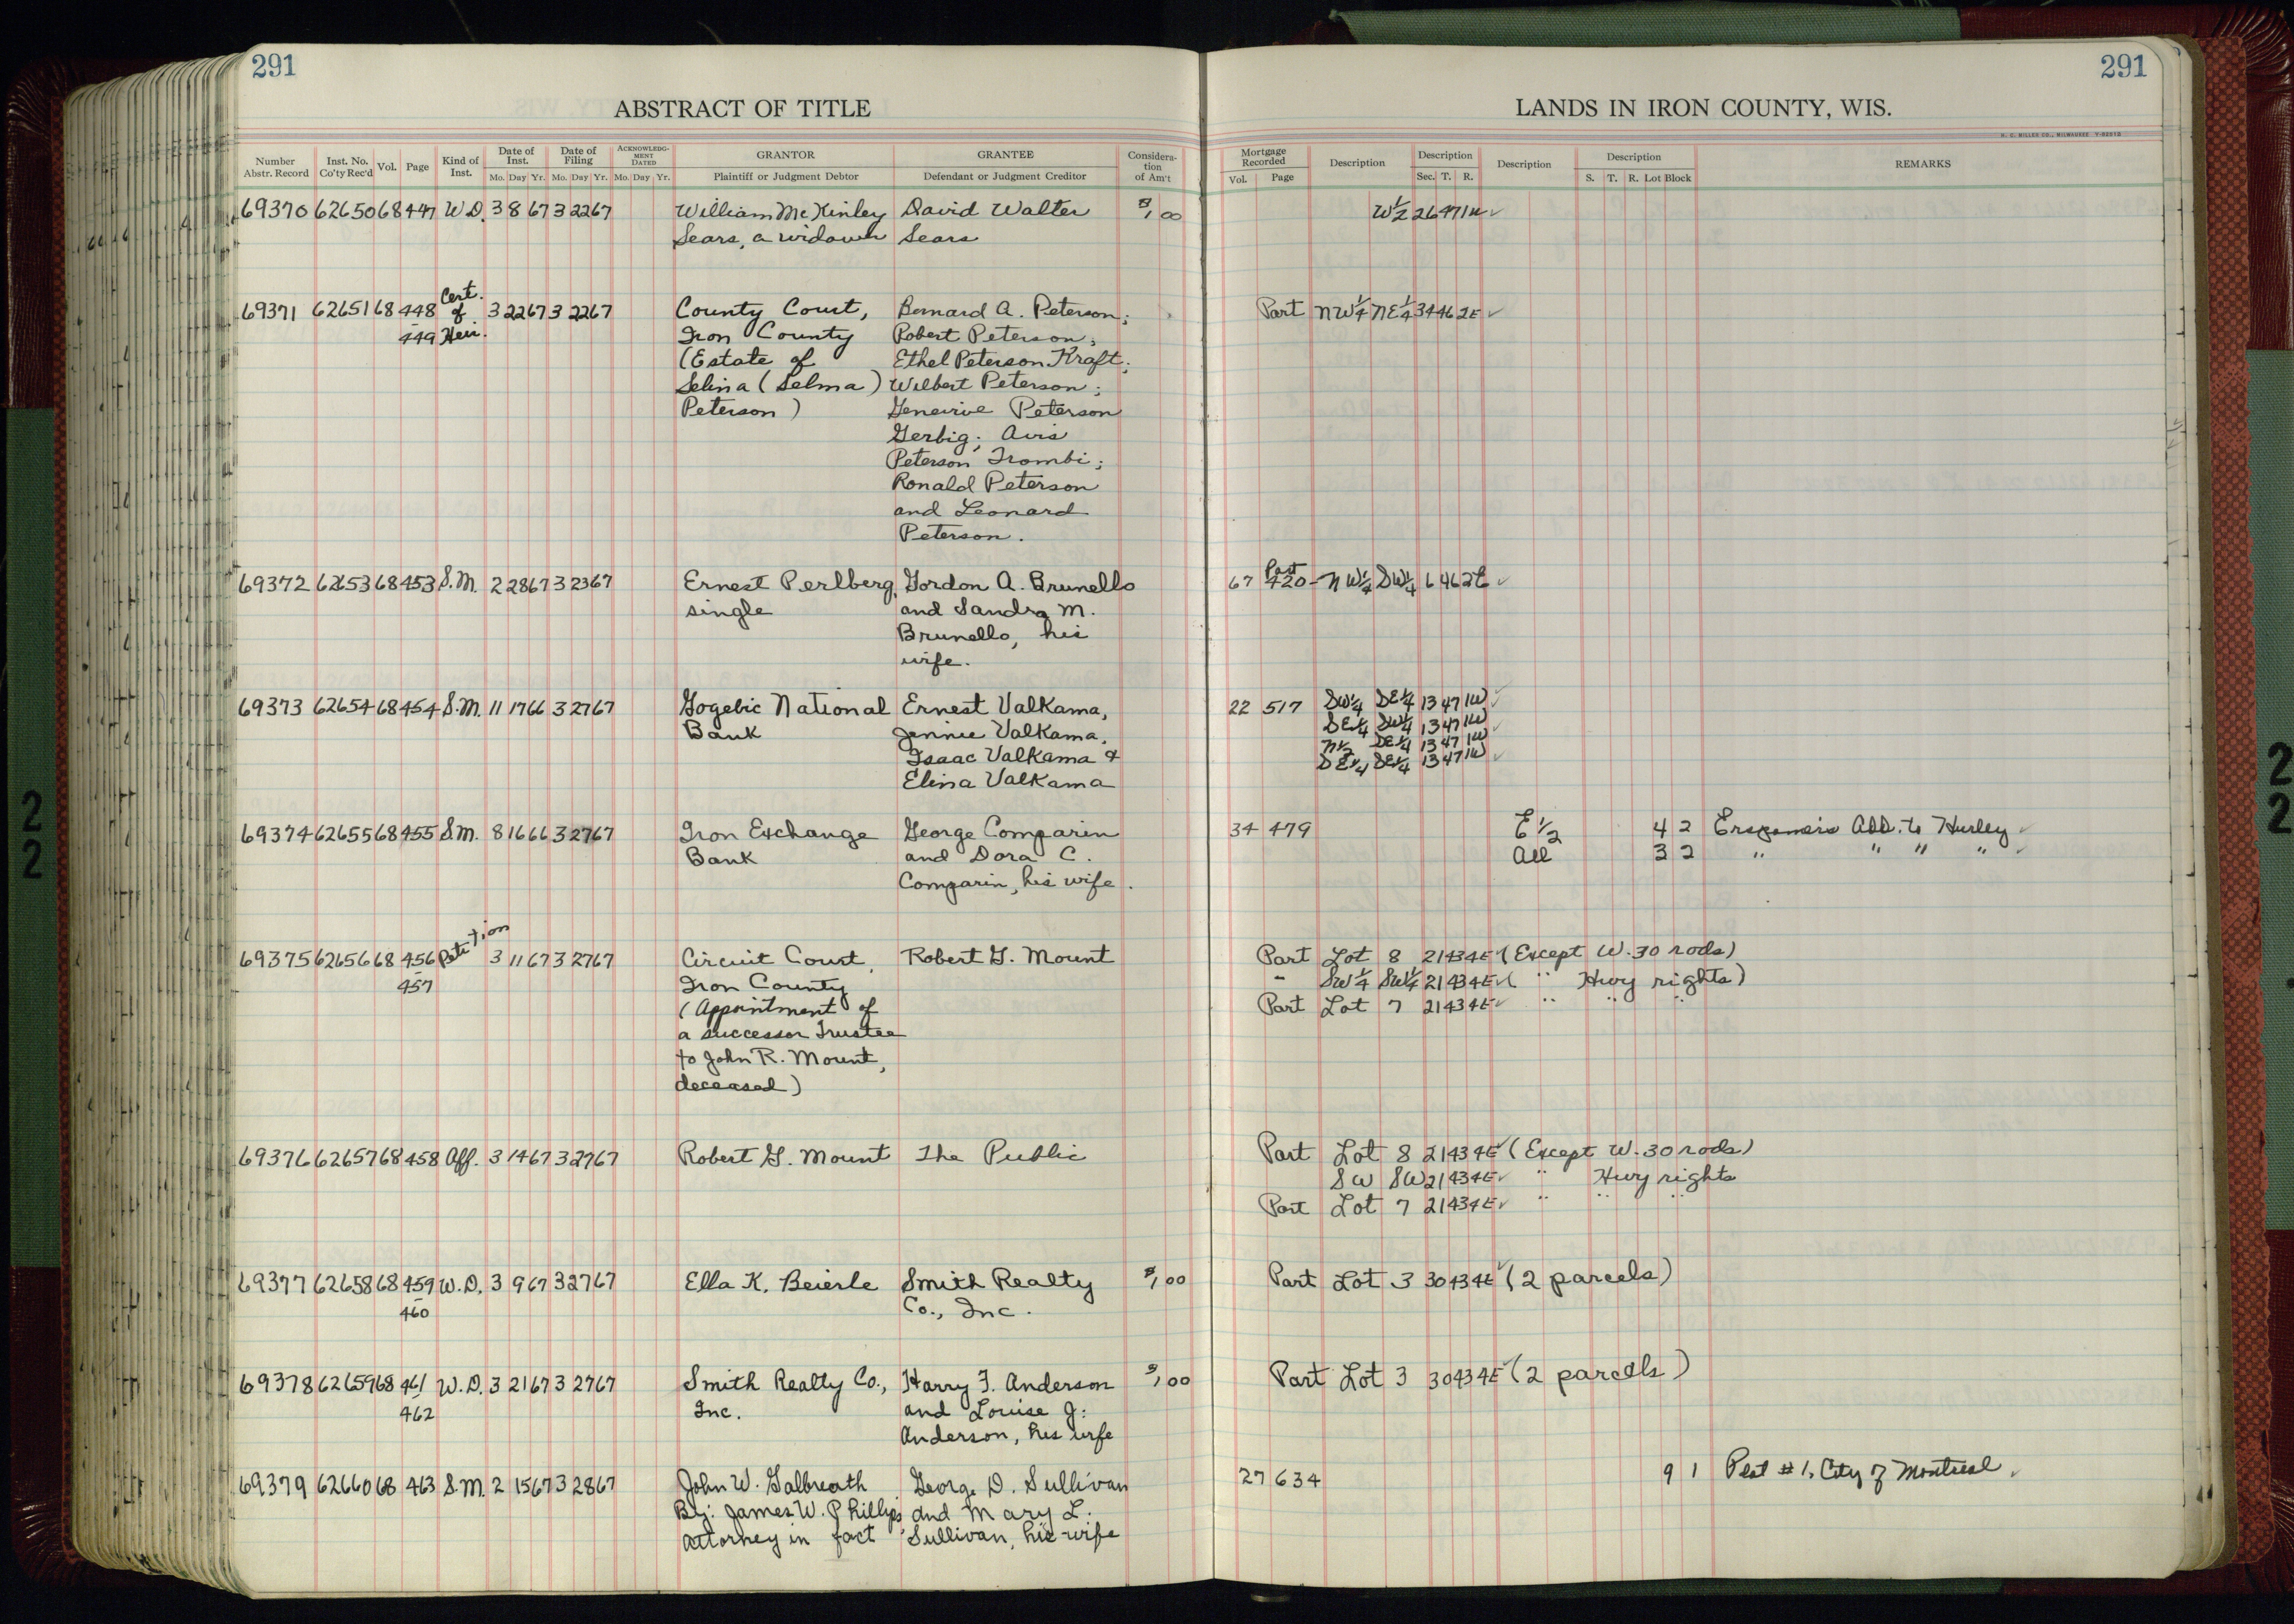 291
291
ABSTRACT OF TITLE
LANDS IN IRON COUNTY, WIS.
H. C. MILLER CO., MILWAUKEE
Number Abstr. Record
Inst. No. Co'ty Rec'd
Vol.
Page
Kind of Inst.
Date of Inst.
Mo. Day Yr.
Date of Filing
Mo. Day Yr.
ACKNOWLEDGMENT DATED
Mo. Day Yr.
GRANTOR
Plaintiff or Judgment Debtor
GRANTEE
Defendant or Judgment Creditor
Consideration of Am't
Mortgage Recorded
Vol. Page
Description
Description
Sec. T. R.
Description
Description
S. T. R. Lot Block
REMARKS
69370 62650 68 447 W.D. 3 8 67 3 22 67 William McKinley David Walter $1,00 W½ 26 47 1W ✓
Sears, a widower Sears
69371 62651 68 448 Cert. of Heir. 3 22 67 3 22 67 County Court, Bernard A. Peterson; Part NW¼ NE¼ 34 46 2E ✓
449 Iron County Robert Peterson;
(Estate of Ethel Peterson Kraft;
Selina (Selma) Wilbert Peterson;
Peterson) Genevive Peterson
Gerbig; Avis
Peterson Trombi;
Ronald Peterson
and Leonard
Peterson.
69372 62653 68 453 S.M. 2 28 67 3 23 67 Ernest Perlberg, Gordon A. Brunello 67 420 Part NW¼ SW¼ 6 46 2E ✓
single and Sandra M.
Brunello, his
wife.
69373 62654 68 454 S.M. 11 17 66 3 27 67 Gogebic National Ernest Valkama, 22 517 SW¼ SE¼ 13 47 1W ✓
Bank Jennie Valkama, SE¼ SW¼ 13 47 1W ✓
Isaac Valkama & N½ SE¼ 13 47 1W
Elina Valkama SE¼ SE¼ 13 47 1W ✓
69374 62655 68 455 S.M. 8 16 66 3 27 67 Iron Exchange George Comparin 34 479 E½ 4 2 Add. to Hurley ✓
Bank and Dora C. All 3 2 " " " " ✓
Comparin, his wife.
69375 62656 68 456 Petition 3 11 67 3 27 67 Circuit Court, Robert G. Mount Part Lot 8 21 43 4E ✓ (Except W. 30 rods)
457 Iron County " SW¼ SW¼ 21 43 4E ✓ ( " Hwy rights)
(Appointment of Part Lot 7 21 43 4E ✓ " " "
a successor Trustee
to John R. Mount,
deceased)
69376 62657 68 458 Aff. 3 14 67 3 27 67 Robert G. Mount The Public Part Lot 8 21 43 4E ✓ (Except W. 30 rods)
SW SW 21 43 4E ✓ " Hwy rights
Part Lot 7 21 43 4E ✓ " " "
69377 62658 68 459 W.D. 3 9 67 3 27 67 Ella K. Beierle Smith Realty $1,00 Part Lot 3 30 43 4E ✓ (2 parcels)
460 Co., Inc.
69378 62659 68 461 W.D. 3 21 67 3 27 67 Smith Realty Co., Harry F. Anderson $1,00 Part Lot 3 30 43 4E ✓ (2 parcels)
462 Inc. and Louise J.
Anderson, his wife
69379 62660 68 463 S.M. 2 15 67 3 28 67 John W. Galbreath George D. Sullivan 27 634 9 1 Plat #1, City of Montreal ✓
By: James W. Phillips, and Mary L.
attorney in fact Sullivan, his wife
22
22